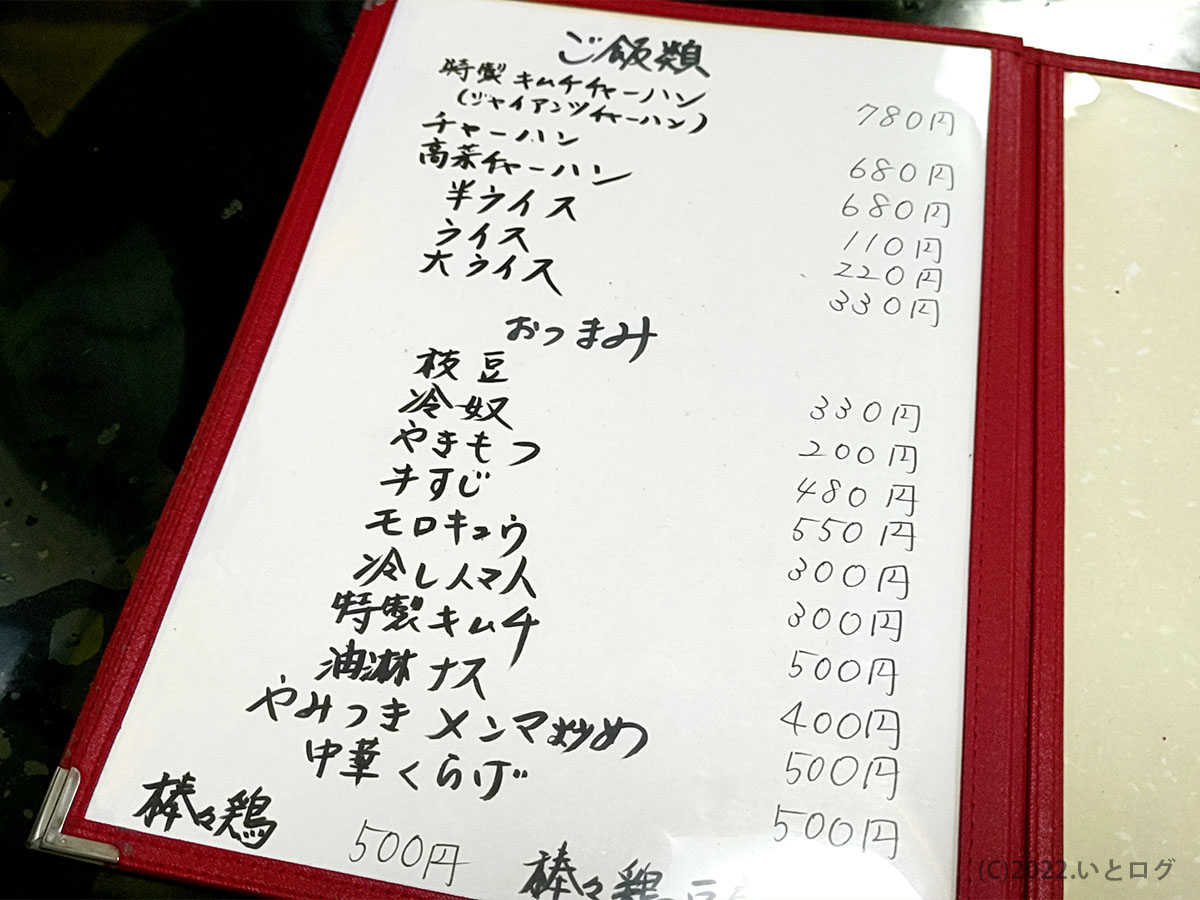 ご飯類
特製キムチチャーハン 780円
(ジャイアンツチャーハン)
チャーハン 680円
高菜チャーハン 680円
半ライス 110円
ライス 220円
大ライス 330円
おつまみ
枝豆 330円
冷奴 200円
やきもつ 480円
牛すじ 550円
モロキュウ 300円
冷しトマト 300円
特製キムチ 500円
油淋ナス 400円
やみつきメンマ炒め 500円
中華くらげ 500円
棒々鶏 500円
棒々鶏
(C)2022.いとログ